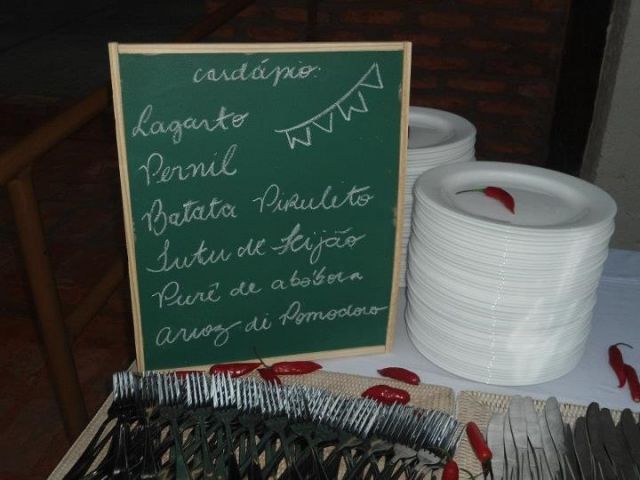 cardápio:
Lagarto
Pernil
Batata Pirulito
Tutu de Feijão
Purê de abóbora
arroz di Pomodoro